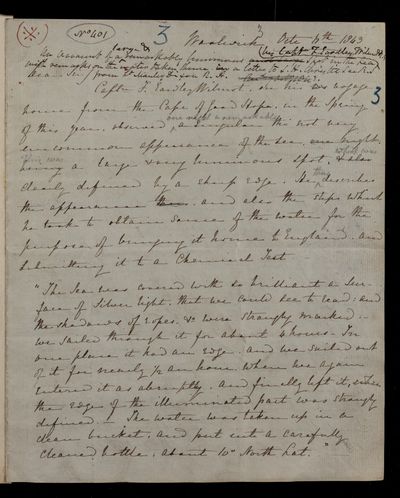 No 401
3
Woolwich Octr 4th 1843
An account of a large & remarkably luminous spot in the sea
with remarks on the water taken thence in a letter to S. H.
Captn F. Eardley Wilmot, on his voyage
3
home from the Cape of Good Hope, in the Spring
of this year, observed, one night a singular tho' not very
uncommon appearance of the sea,
being a large & very luminous spot, & also
clearly defined by a sharp edge. He describes
the appearance and also the steps which
he took to obtain some of the water for the
purpose of bringing it home to England and
submitting it to a Chemical Test
"The Sea was covered with so brilliant a sur-
face of Silver light, that we could see to read, and
the shadows of ropes, &c were strongly marked.
we sailed through it for about 4 hours - In
one place it had an edge, and we sailed out
of it for nearly ½ an hour when we again
entered it as abruptly, and finally left it, when
the edge of the illuminated part was strongly
defined. - The water was taken up in a
clean bucket, and put into a carefully
cleaned bottle, about 10° North Lat."